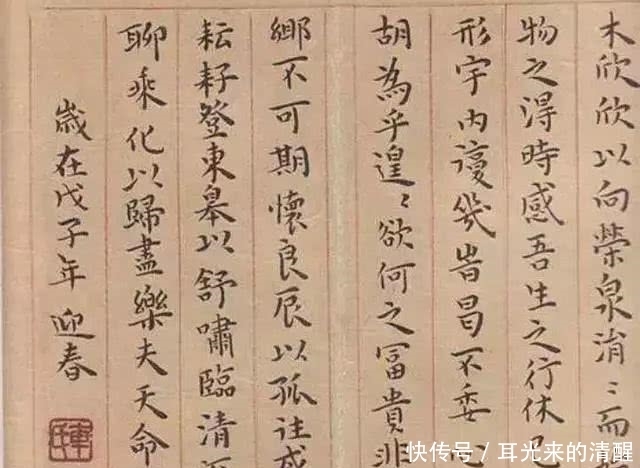 木欣欣以向榮泉涓〻而
物之得時感吾生之行休
形宇内復幾旹曷不委心
胡為乎遑〻欲何之冨貴非
鄉不可期懷良辰以孤往或
耘耔登東皋以舒嘯臨清
聊乘化以歸盡樂夫天命
歲在戊子年迎春
快传号/耳光来的清醒